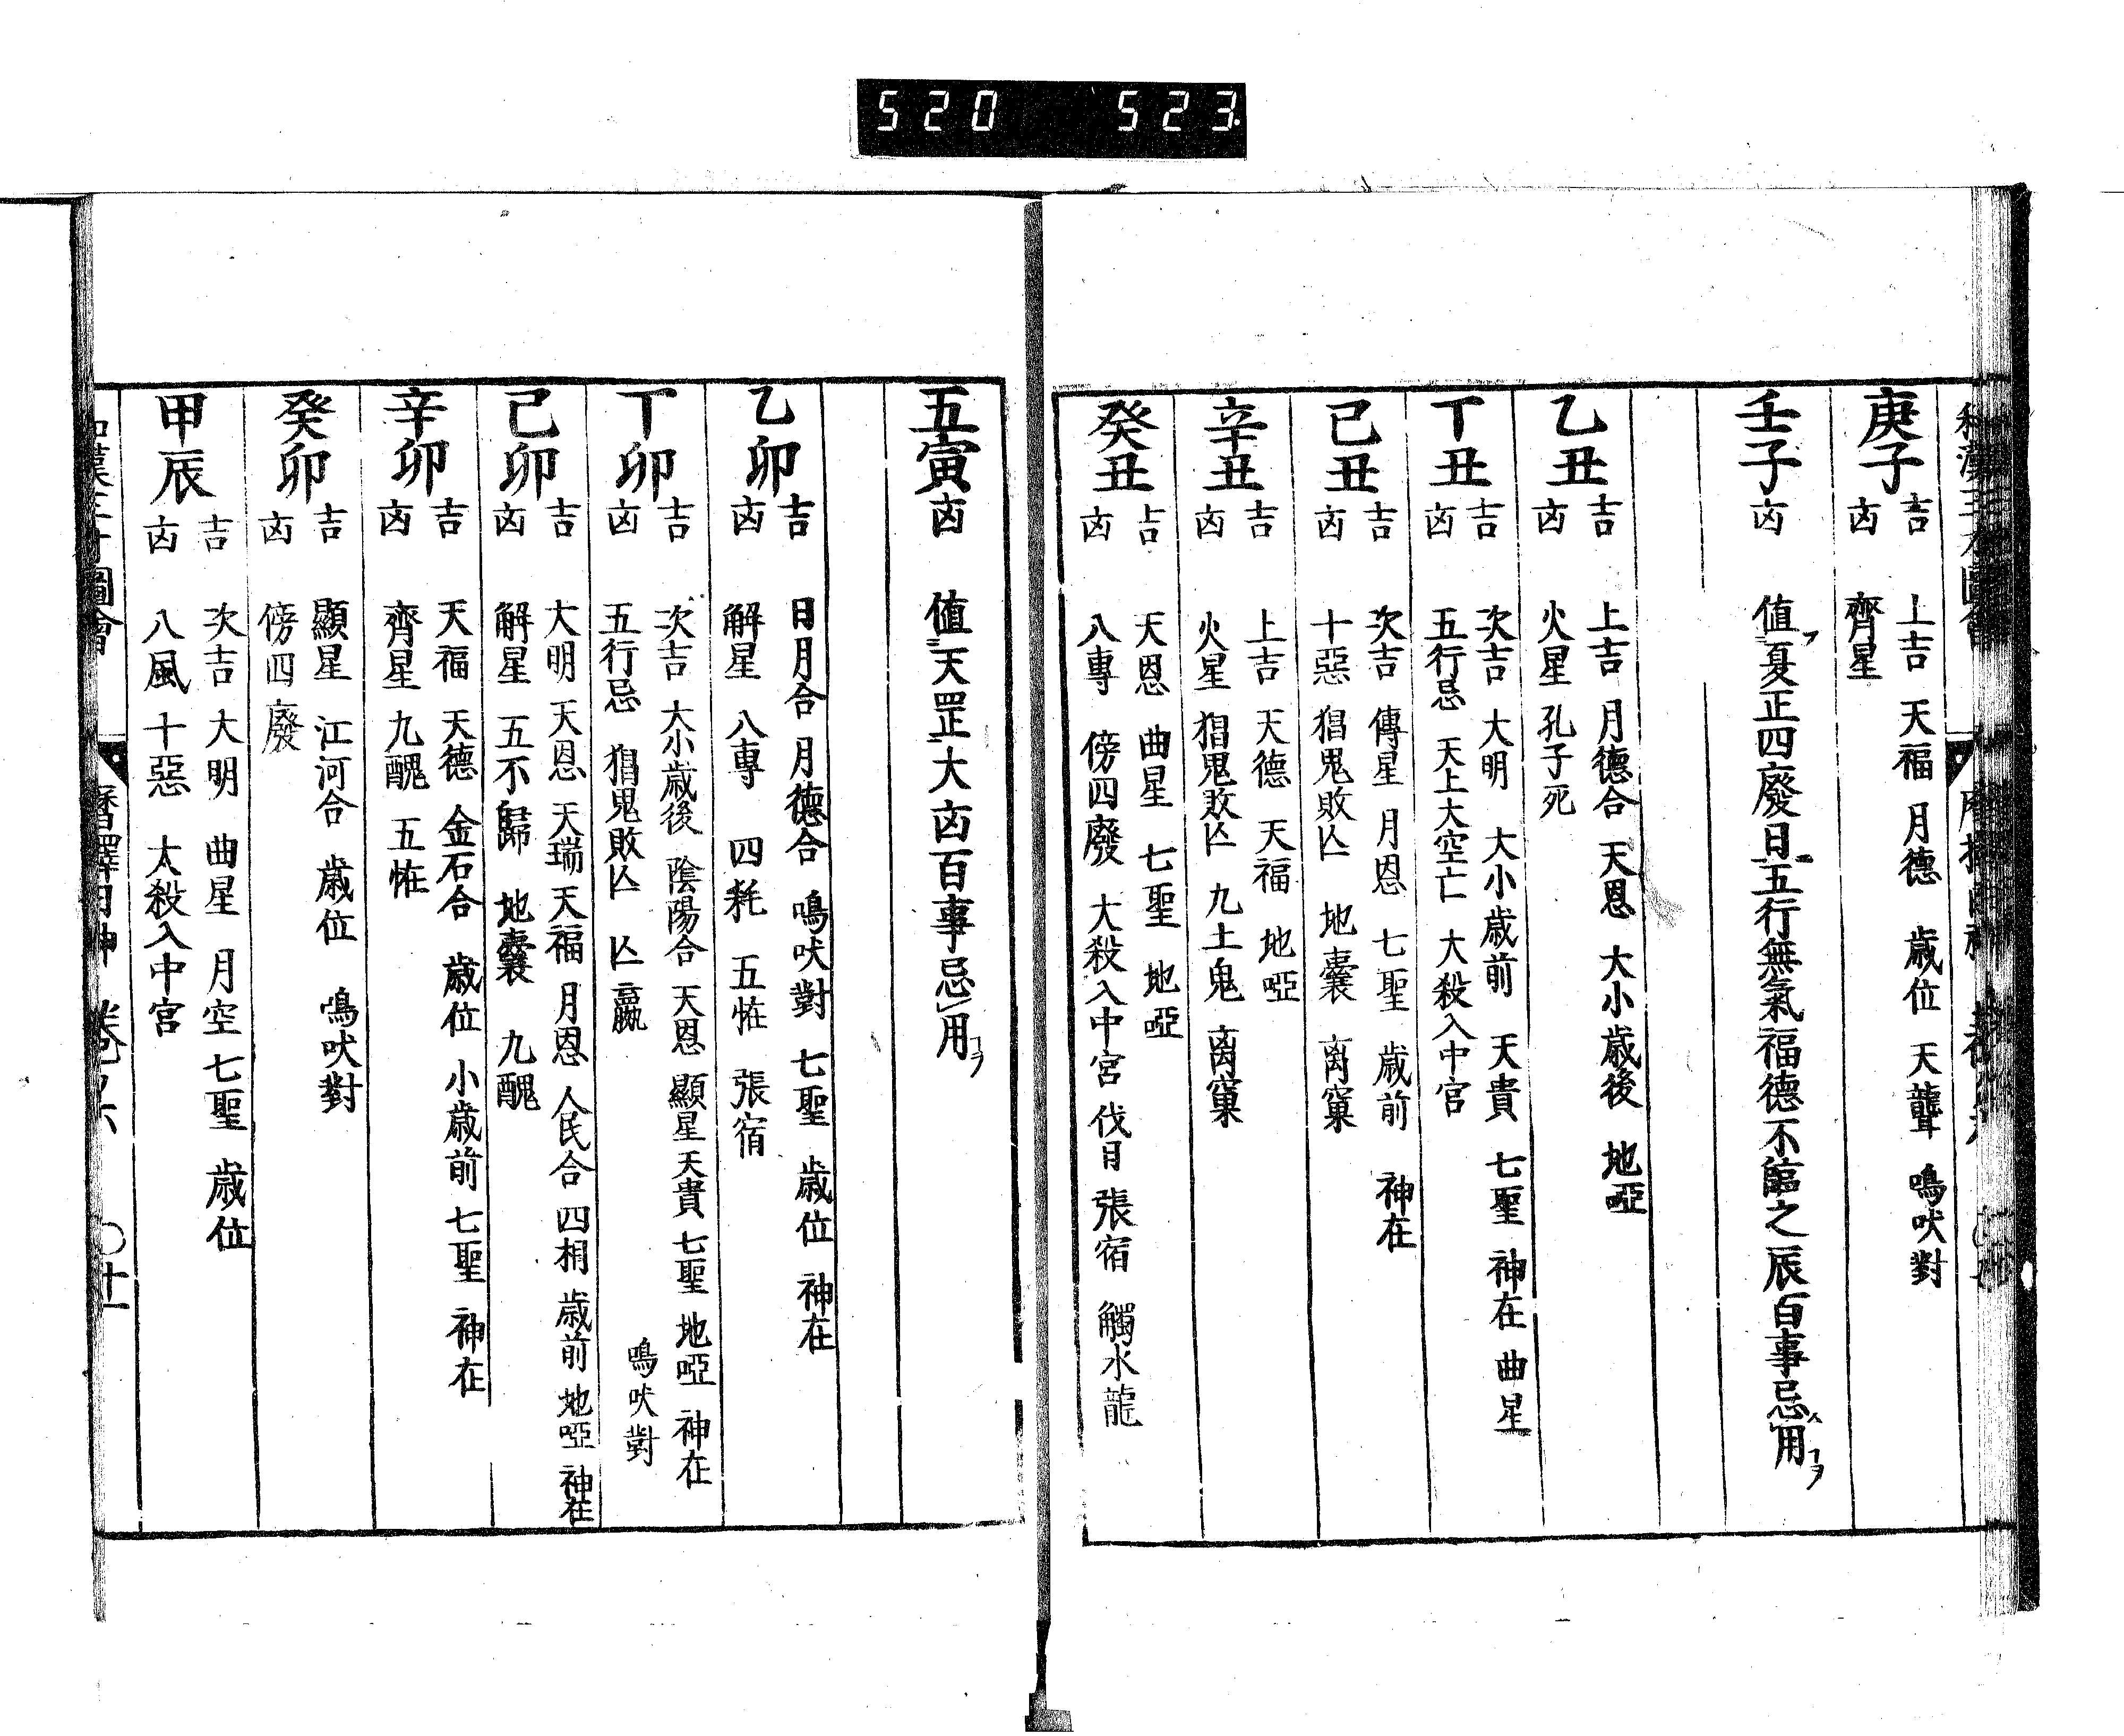 520 523
庚子 吉 上吉 天福 月德 歳位 天聾 鳴吠對
凶 齊星
壬子 凶 値夏正四廢日五行無氣福德不臨之辰百事忌用
乙丑 吉 上吉 月德合 天恩 大小歳後 地啞
凶 火星 孔子死
丁丑 吉 次吉 大明 大小歳前 天貴 七聖 神在 曲星
凶 五行忌 天上大空亡 大殺入中宮
己丑 吉 次吉 傳星 月恩 七聖 歳前 神在
凶 十惡 猖鬼敗亾 地囊 离窠
辛丑 吉 上吉 天德 天福 地啞
凶 火星 猖鬼敗亾 九土鬼 离窠
癸丑 吉 天恩 曲星 七聖 地啞
凶 八專 傍四廢 大殺入中宮 伐日 張宿 觸水龍
五寅 凶 値天罡大凶百事忌用
乙卯 吉 日月合 月德合 鳴吠對 七聖 歳位 神在
凶 解星 八專 四耗 五恠 張宿
丁卯 吉 次吉 大小歳後 陰陽合 天恩 顯星 天貴 七聖 地啞 神在 鳴吠對
凶 五行忌 猖鬼敗亾 亾嬴
己卯 吉 大明 天恩 天瑞 天福 月恩 人民合 四相 歳前 地啞 神在
凶 解星 五不歸 地囊 九醜
辛卯 吉 天福 天德 金石合 歳位 小歳前 七聖 神在
凶 齊星 九醜 五恠
癸卯 吉 顯星 江河合 歳位 鳴吠對
凶 傍四廢
甲辰 吉 次吉 大明 曲星 月空 七聖 歳位
凶 八風 十惡 太殺入中宮
圖會 曆擇日神 卷ノ六 〇十一